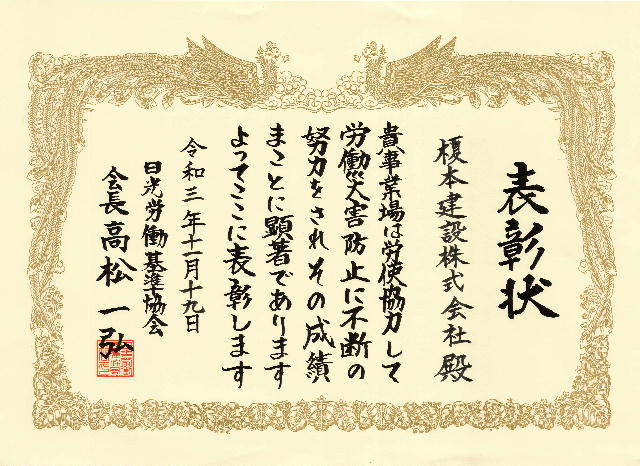 表彰状
榎本建設株式会社 殿
貴事業場は労使協力して
労働災害防止に不断の
努力をされその成績
まことに顕著であります
よってここに表彰します
令和三年十一月十九日
日光労働基準協会
会長 高松一弘